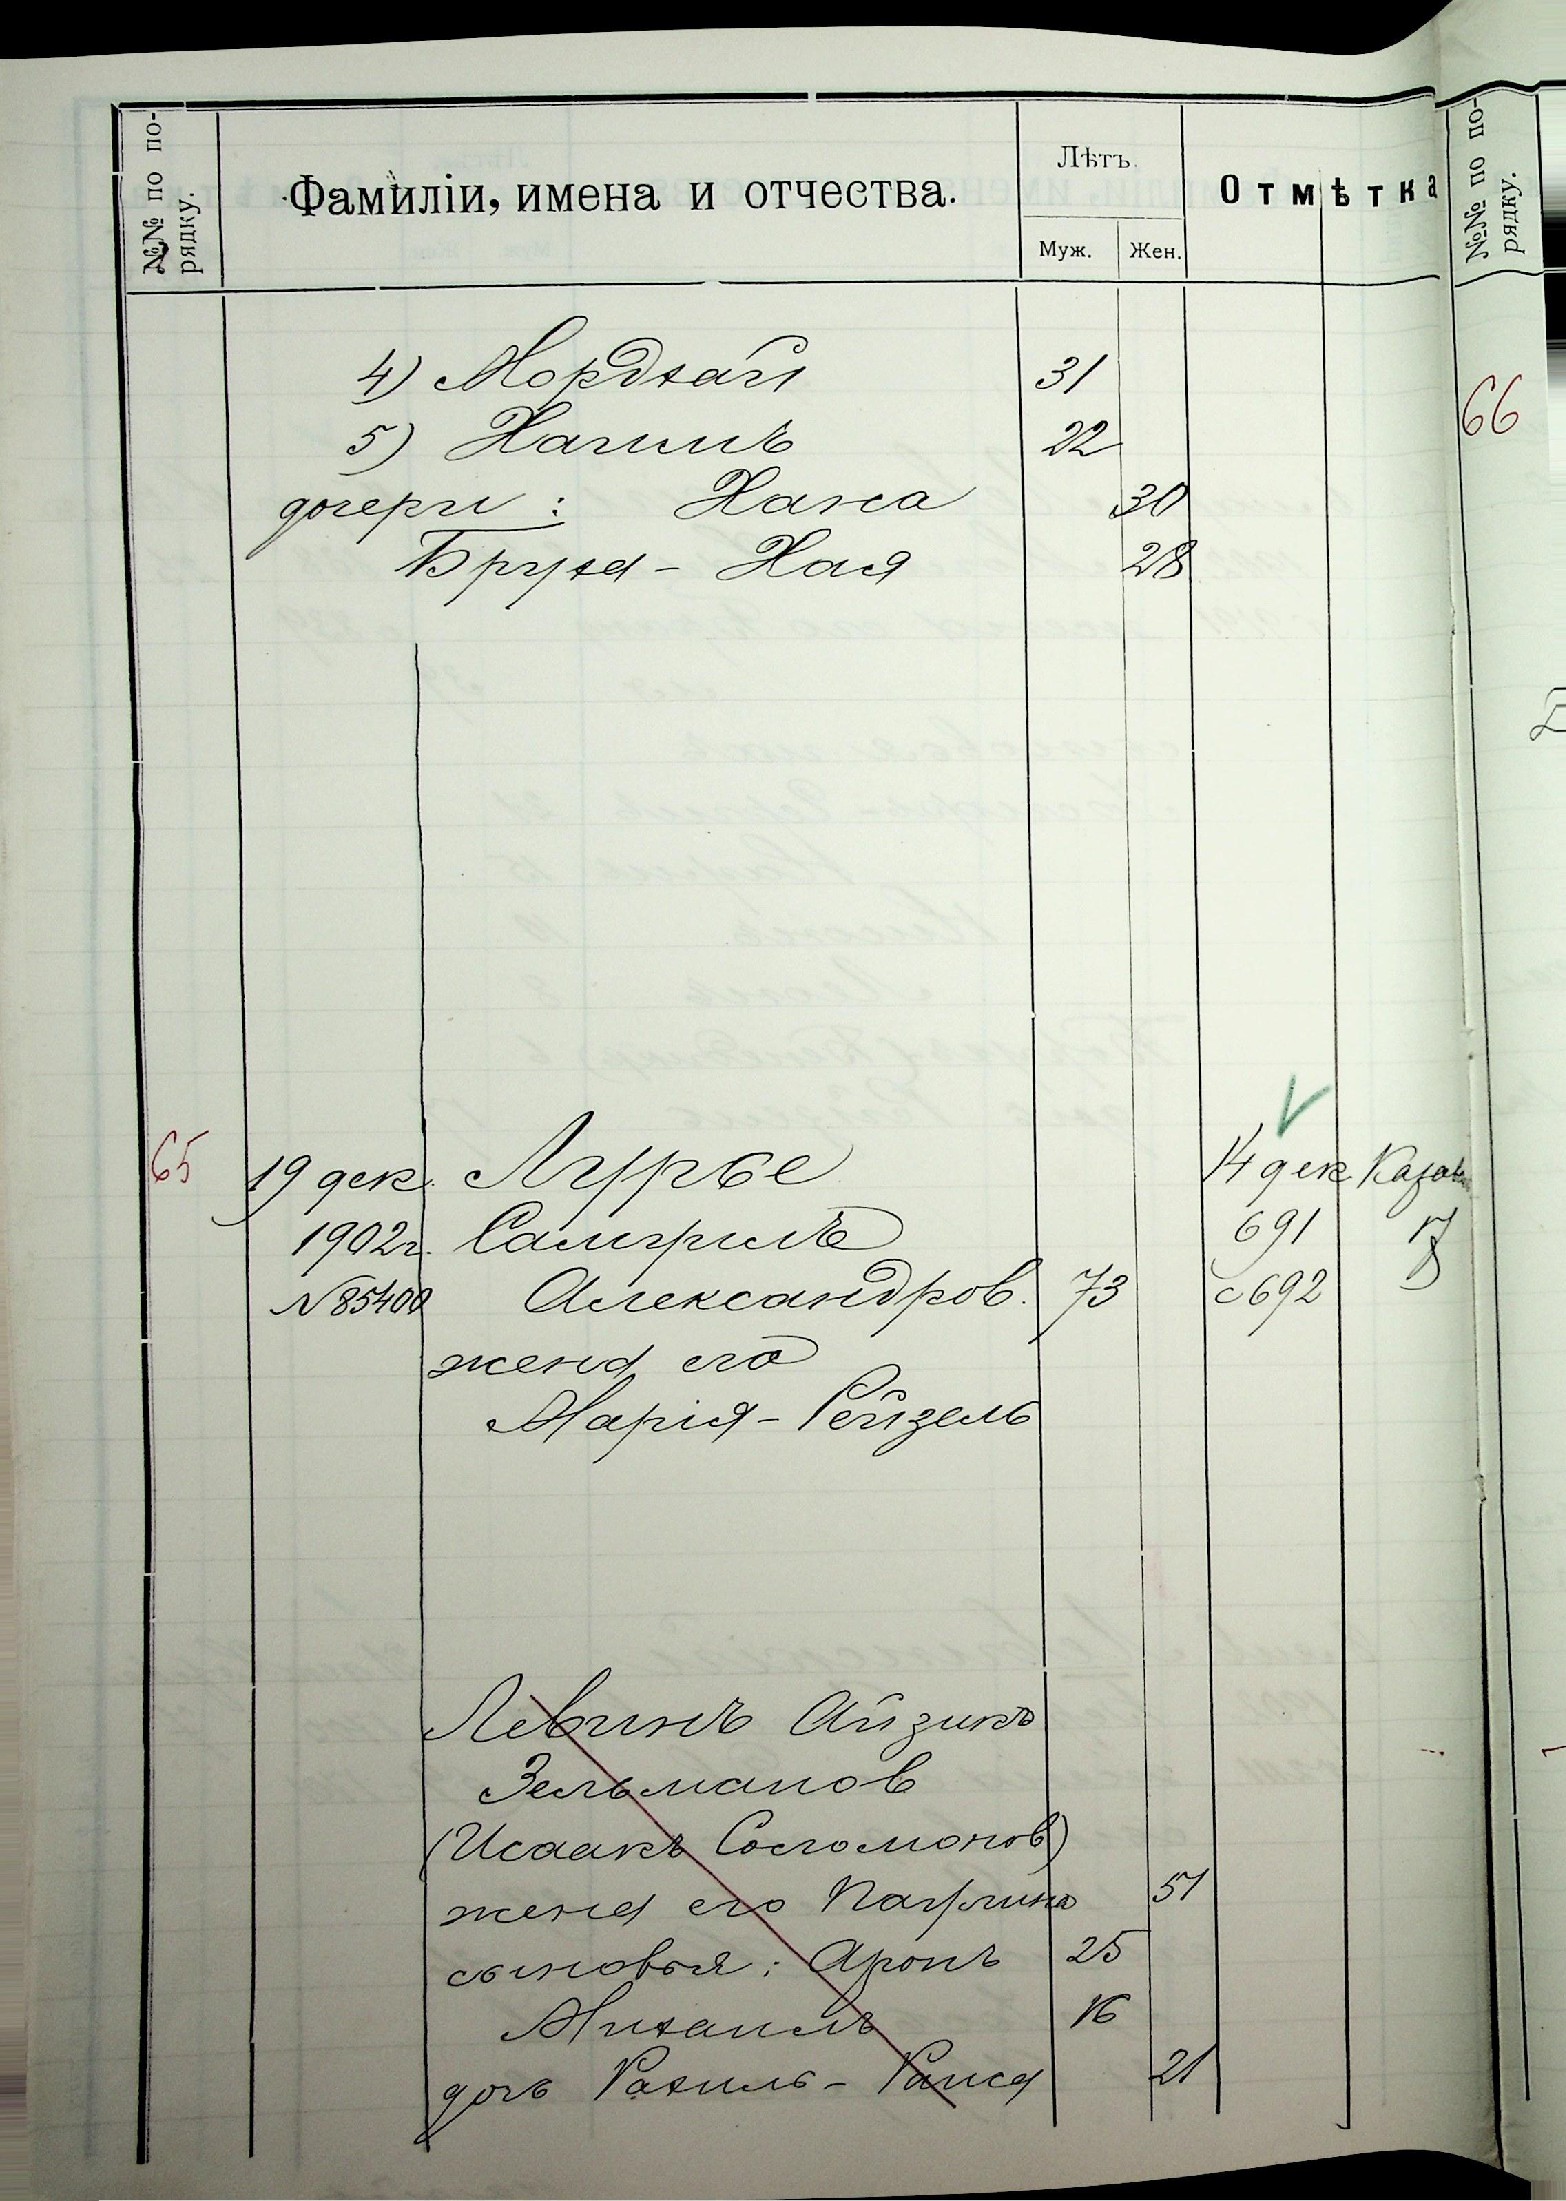 №№ по по-
рядку.
Фамиліи, имена и отчества.
Лѣтъ.
Муж.
Жен.
Отмѣтка
№№ по по-
рядку.
4) Мордхай 31
5) Хаимъ 22
дочери: Хана 30
Бруха - Хая 28
66
65 19 дек. Лурье 14 дек Казан
1902г. Самуилъ 691
№ 85400 Александров. 73 с 692
жена его
Марія - Рейзель
Левинъ Айзикъ
Зельманов
(Исаакъ Соломонов)
жена его Паулина 51
сыновья: Аронъ 25
Михаилъ 16
дочь Рахиль - Раиса 21